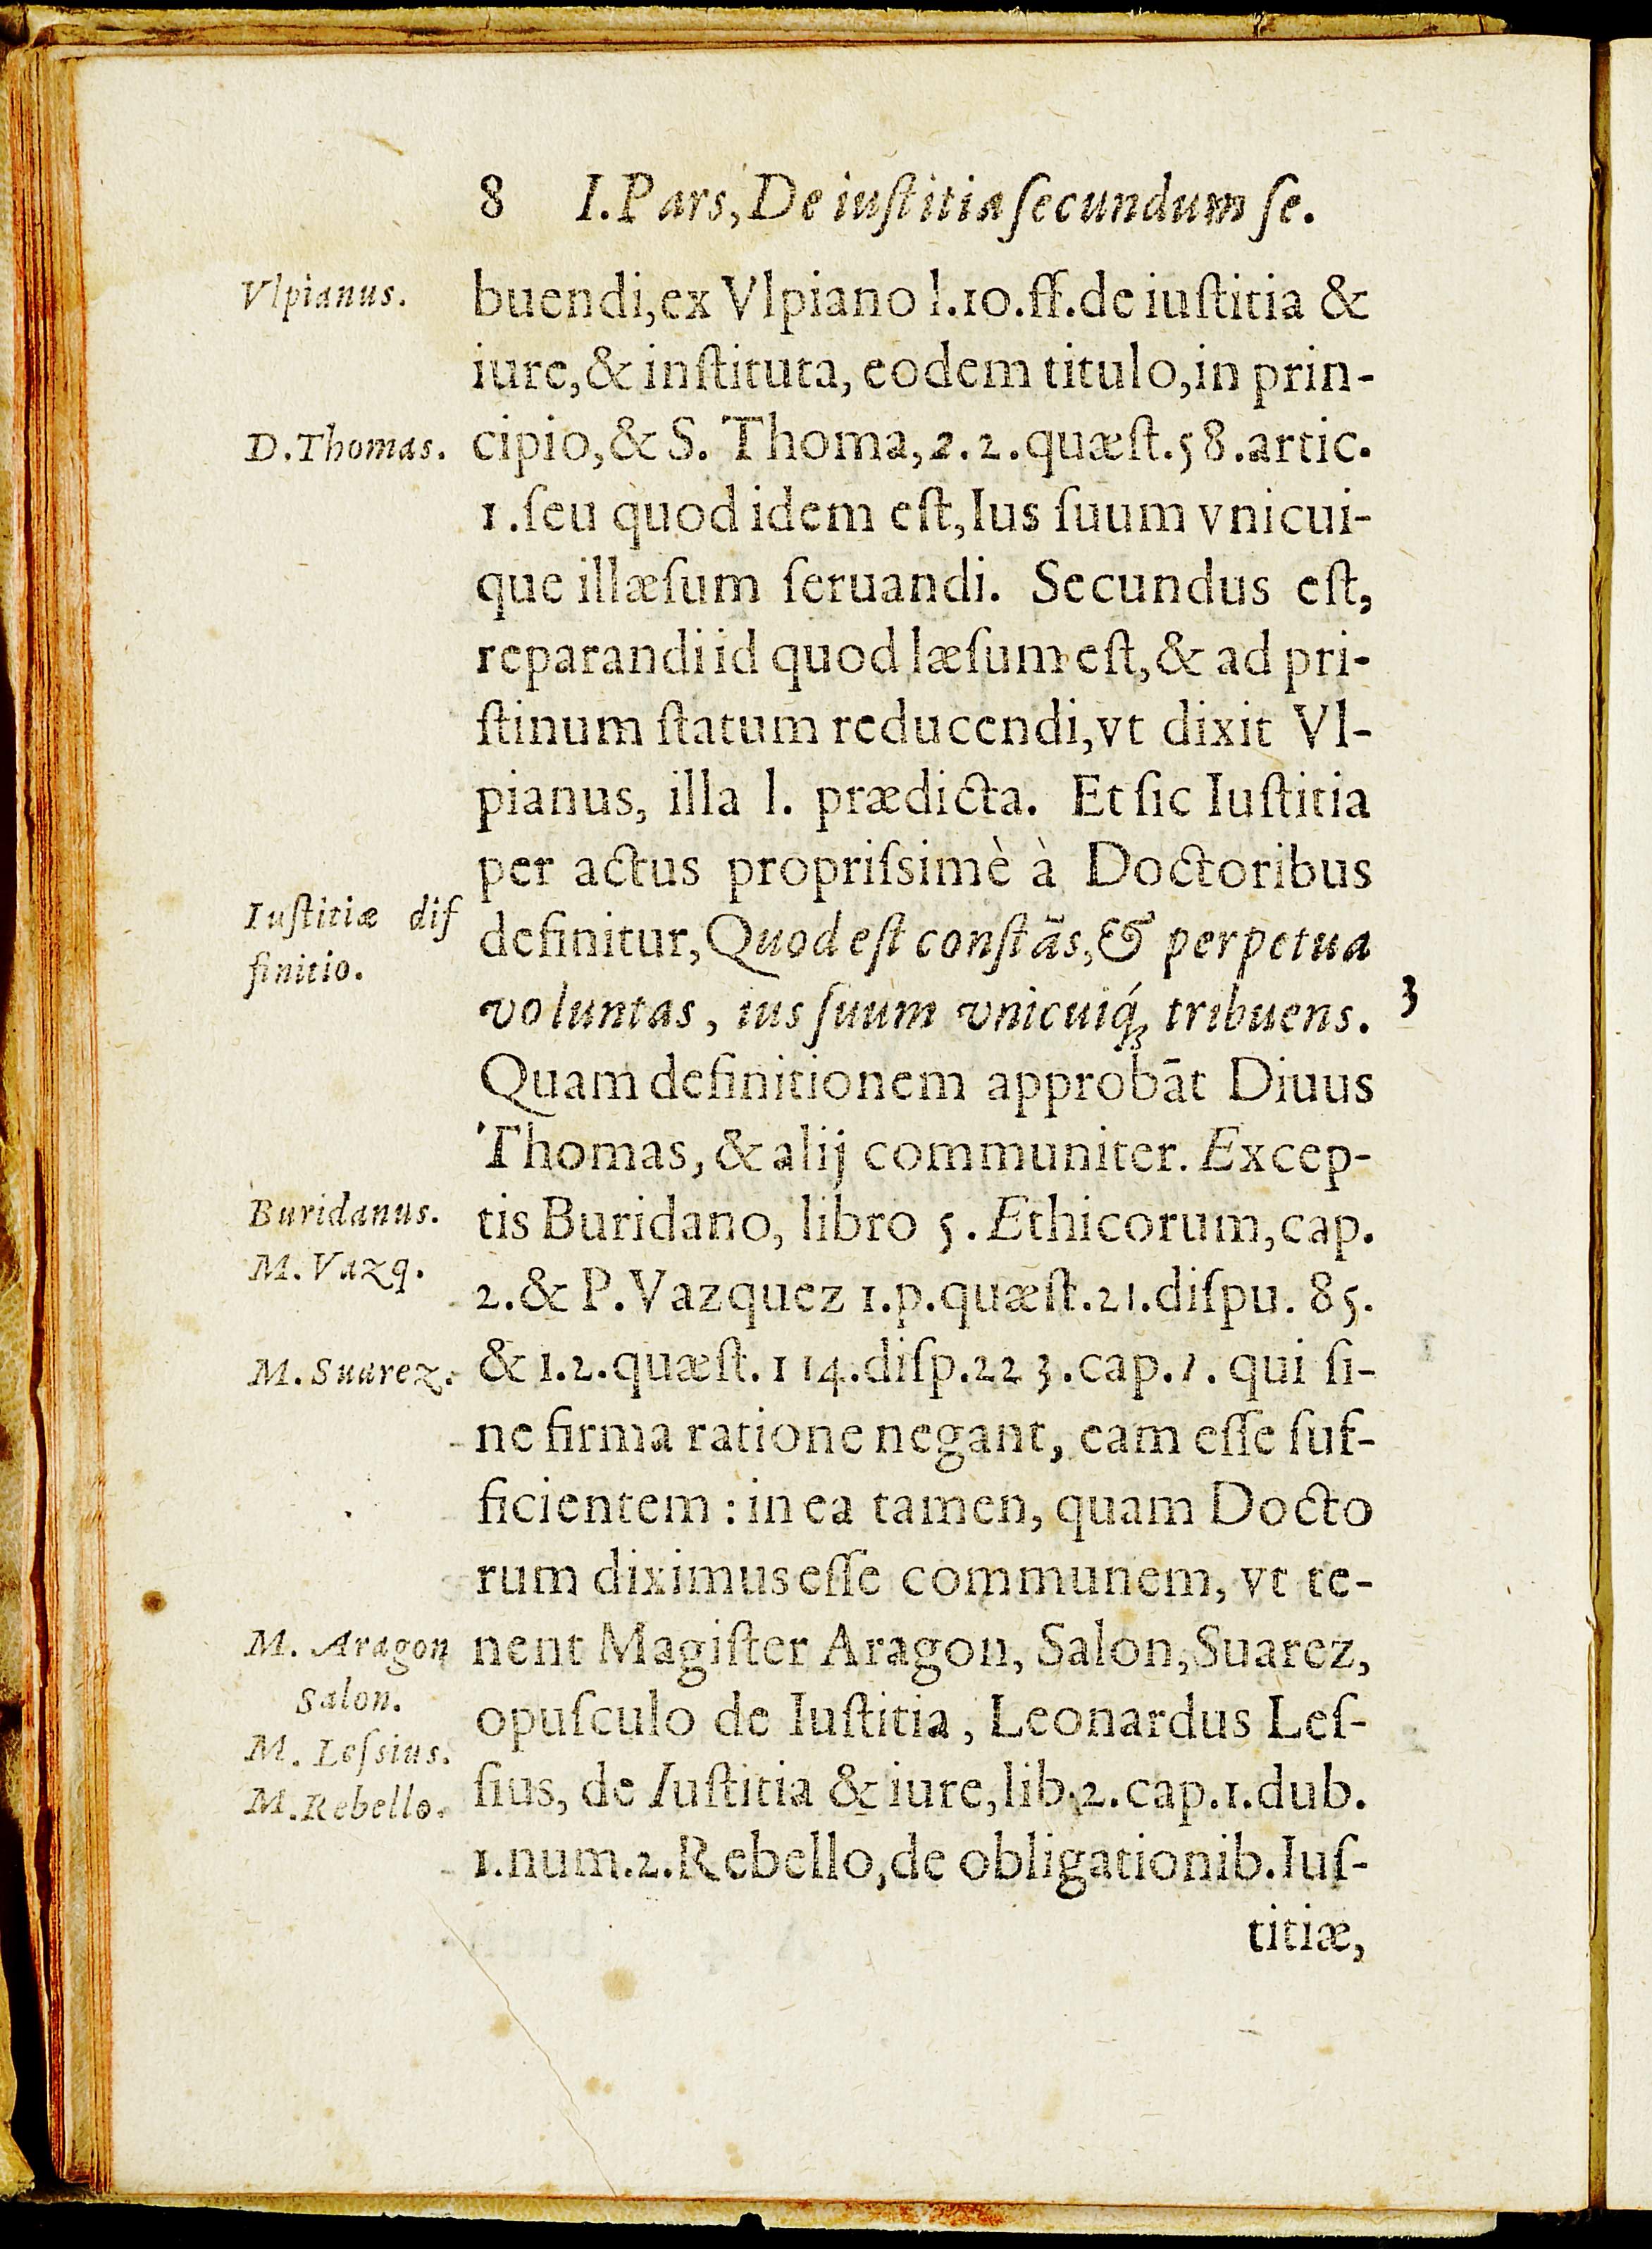 8 I. Pars, De iuſtitia ſecundum ſe.
Vlpianus.
buendi, ex Vlpiano l. 10. ff. de iuſtitia &
iure, & inſtituta, eodem titulo, in prin-
D. Thomas.
cipio, & S. Thoma, 2. 2. quæſt. 58. artic.
1. ſeu quod idem eſt, Ius ſuum vnicui-
que illæſum ſeruandi. Secundus eſt,
reparandi id quod læſum eſt, & ad pri-
ſtinum ſtatum reducendi, vt dixit Vl-
pianus, illa l. prædicta. Et ſic Iuſtitia
per actus propriſsimè à Doctoribus
Iuſtitiæ dif
finitio.
definitur, Quod eſt conſtãs, & perpetua
voluntas, ius ſuum vnicuiq́; tribuens.
3
Quam definitionem approbãt Diuus
Thomas, & alij communiter. Excep-
Buridanus.
tis Buridano, libro 5. Ethicorum, cap.
M. Vazq.
2. & P. Vazquez 1. p. quæſt. 21. diſpu. 85.
M. Suarez.
& 1. 2. quæſt. 114. diſp. 223. cap. 7. qui ſi-
ne firma ratione negant, eam eſſe ſuf-
ficientem: in ea tamen, quam Docto
rum diximus eſſe communem, vt te-
M. Aragon
nent Magiſter Aragon, Salon, Suarez,
Salon.
opuſculo de Iuſtitia, Leonardus Leſ-
M. Leſsius.
M. Rebello.
ſius, de Iuſtitia & iure, lib. 2. cap. 1. dub.
1. num. 2. Rebello, de obligationib. Iuſ-
titiæ,